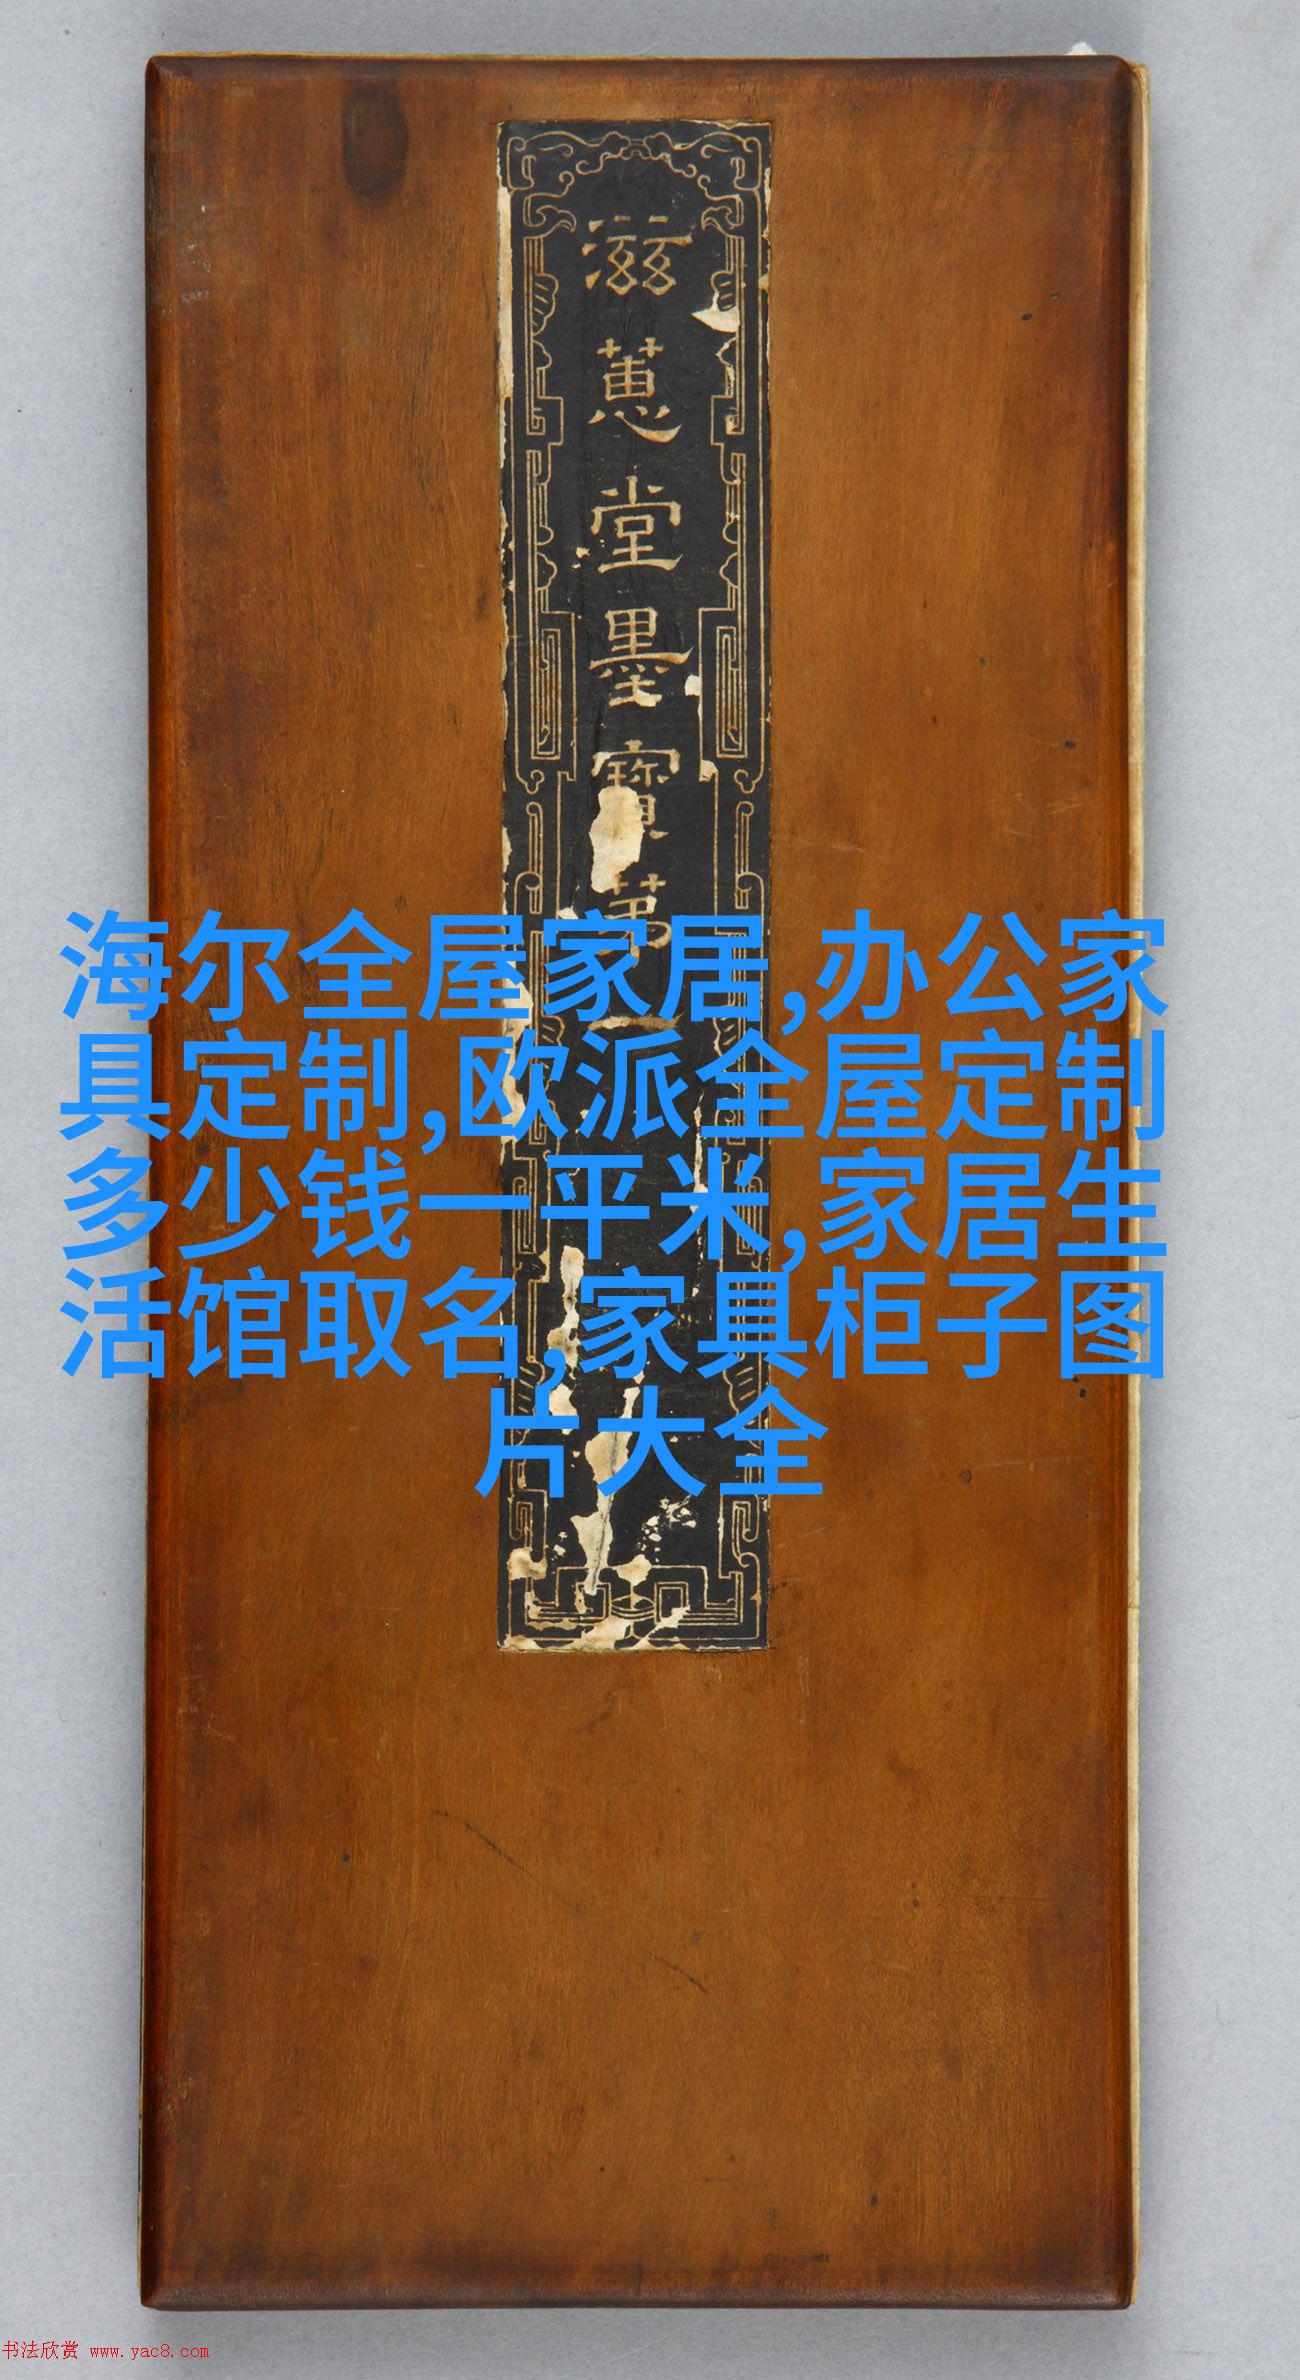 滋蕙堂墨寶第一
海尔全屋家居,办公家
具定制,欧派全屋定制
多少钱一平米,家居生
活馆取名,家具柜子图
片大全
书法欣赏 www.yac8.com